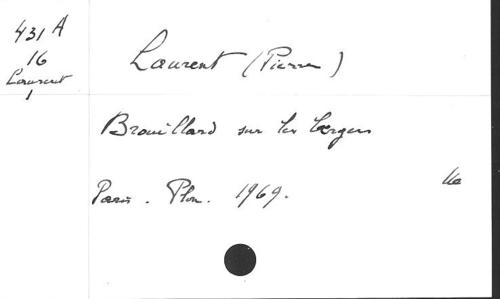 431 A
16
Laurent
1
Laurent (Pierre)
Brouillard sur les berges
Paris. Plon. 1969.